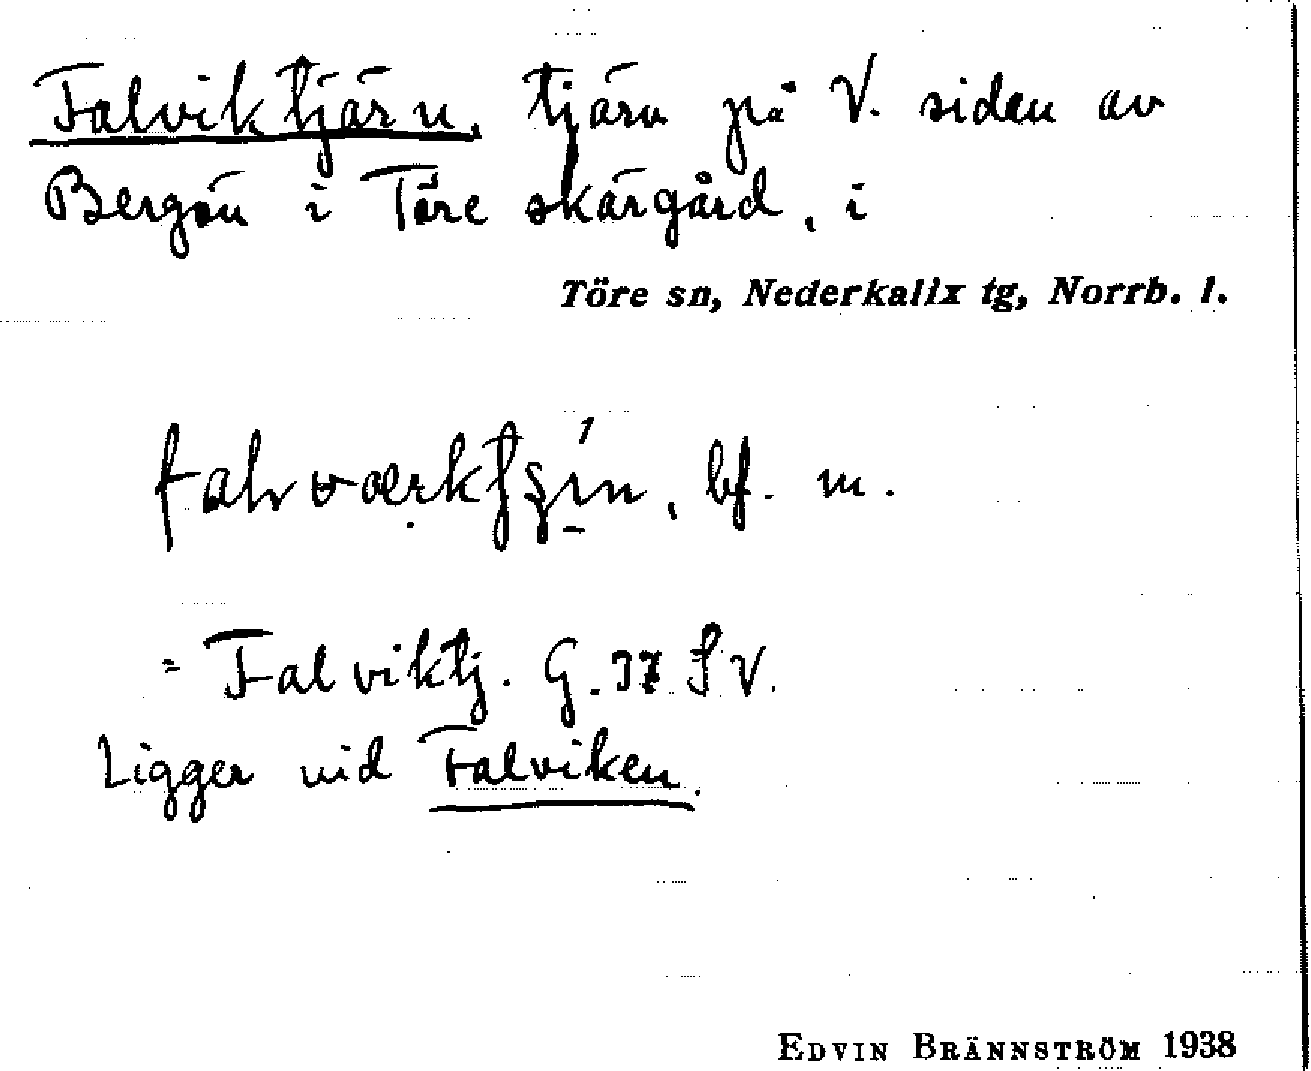 Falviktjärn, tjärn på V. siden av
Bergön i Töre skärgård, i
Töre sn, Nederkalix tg, Norrb. l.
bf. m.
= Falviktj. G. 37 SV.
Ligger vid Falviken.
EDVIN BRÄNNSTRÖM 1938